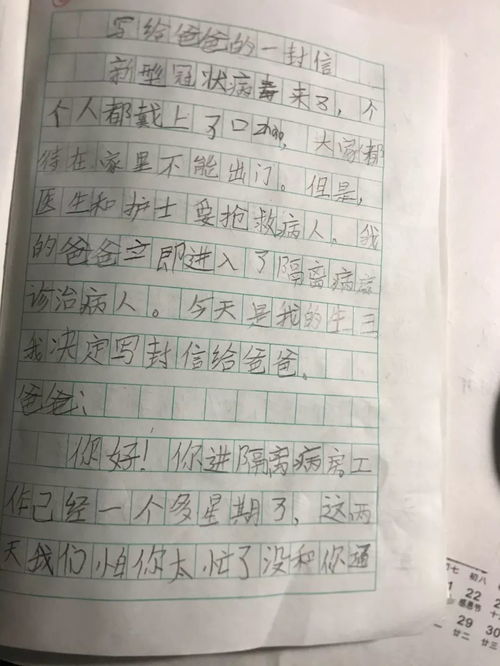 写给爸爸的一封信
新型冠状病毒来了，个
个人都戴上了口zhao，大家都
待在家里不能出门。但是，
医生和护士要抢救病人。我
的爸爸立即进入了隔离病房
诊治病人。今天是我的生日
我决定写封信给爸爸。
爸爸：
你好！你进隔离病房工
作已经一个多星期了，这两
天我们怕你太忙了没和你通
初八
22
感恩节
29
30
廿二
廿三